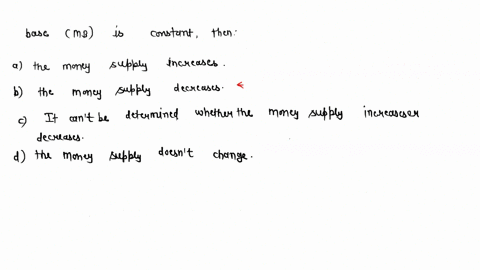 base (MB) is constant, then:
a) the money supply increases.
b) the money supply decreases.
c) It can't be determined whether the money supply increases or
decreases.
d) the money supply doesn't change.